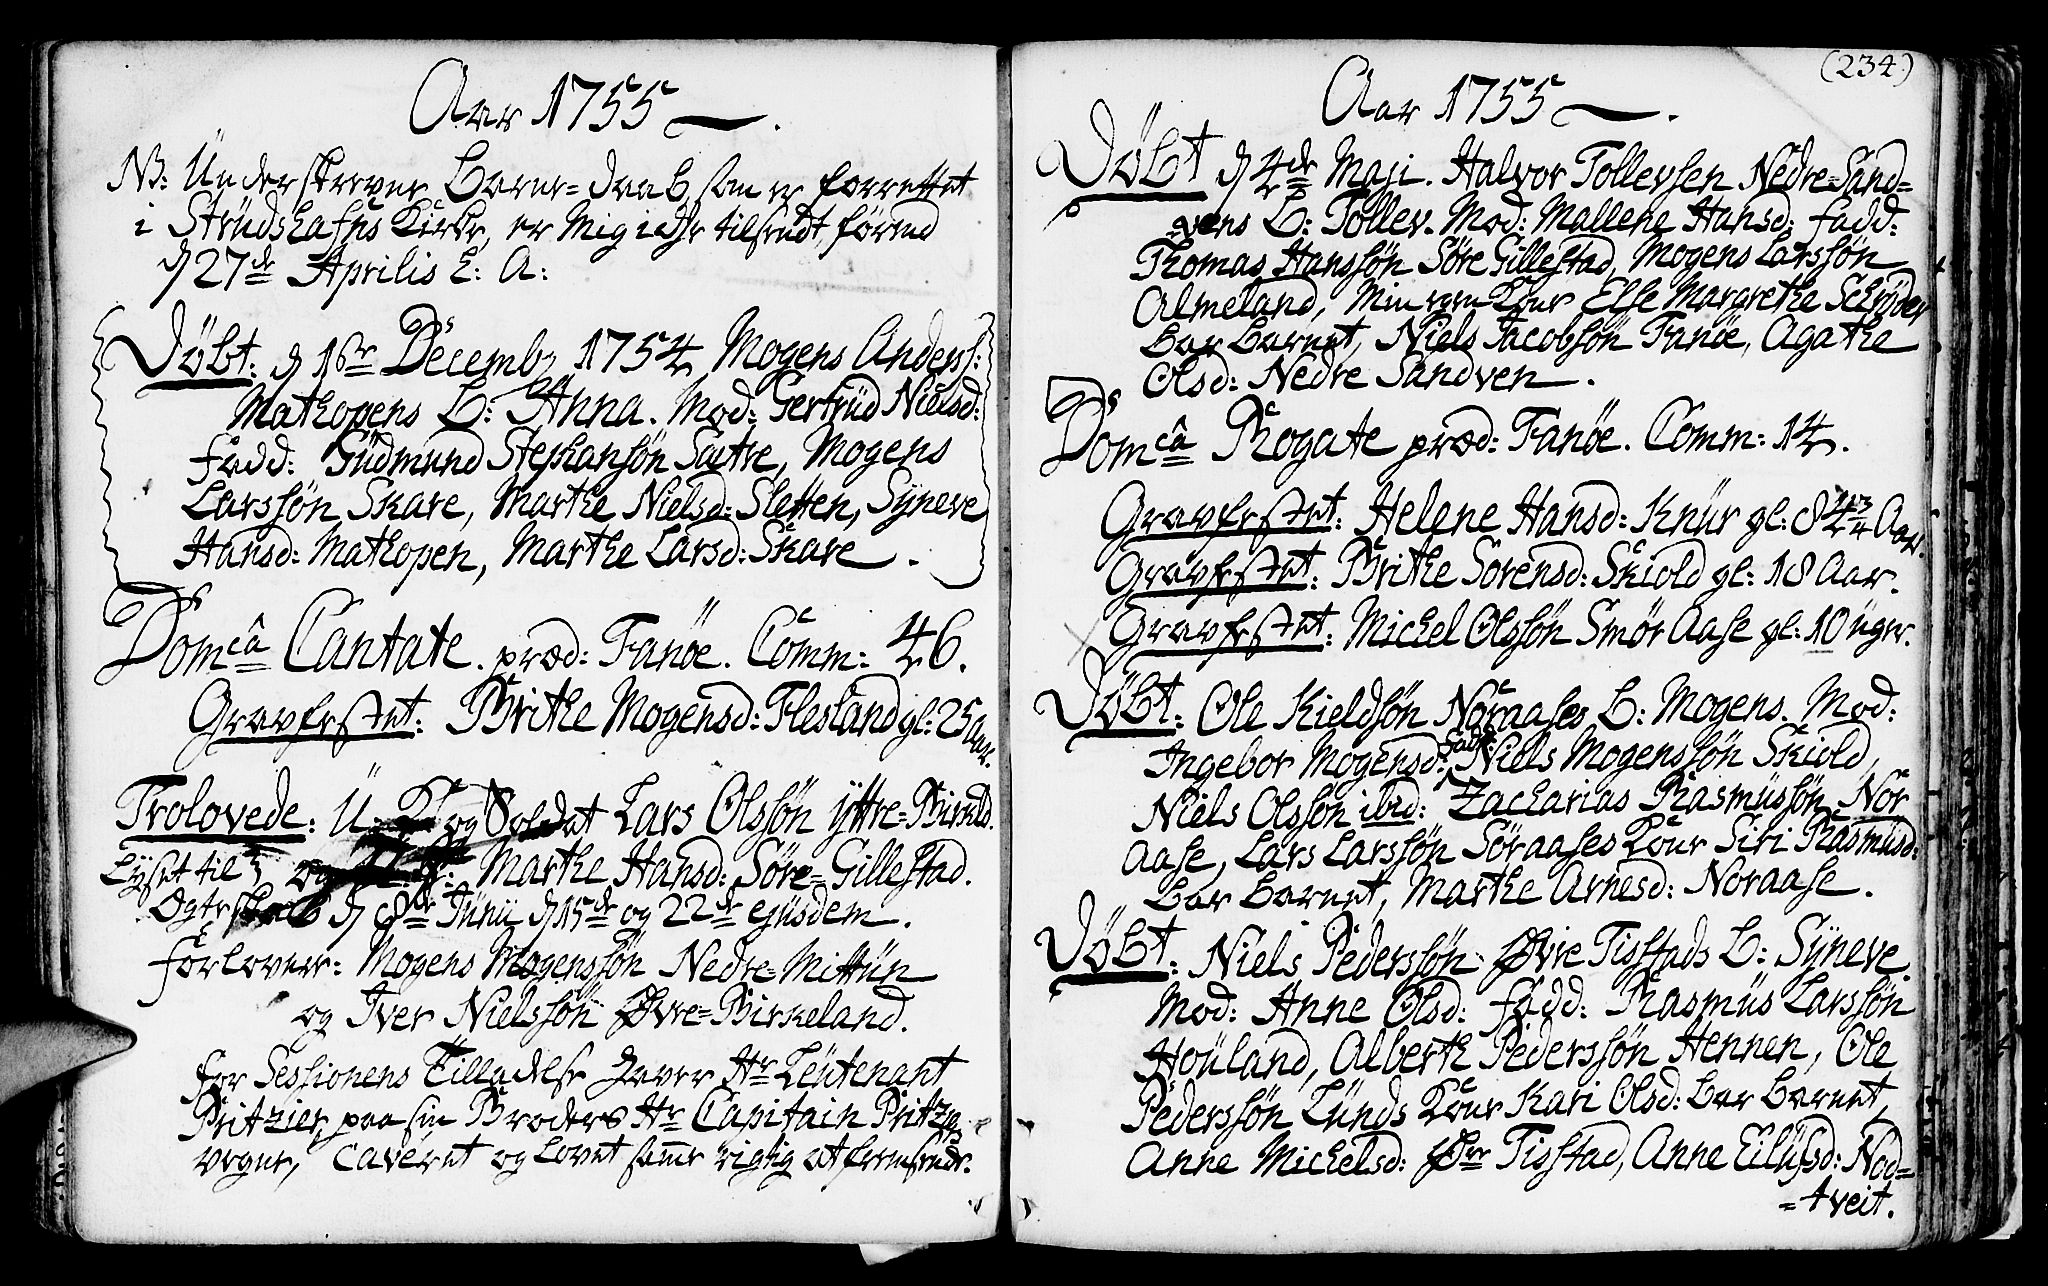 Aar 1755
NB: Underskrevne Barne=Daab, som er forrettet
i Strudshafns Kirke, er mig icke tilsendt, förend
d 27de Aprilis h: A:
Döbt: d 1ste Decemb 1754 Mogens Anders:
Mathopens B: Anna. Mod: Gertrüd Nielsd:
Fadd: Gudmund Stephansön Sætre, Mogens
Larssön Skare, Marthe Nielsd: Sletten, Syneve
Hansd: Mathopen, Marthe Larsd: Skare.
Domcâ Cantate. præd: Fanöe. Comm: 46.
Gravfæstet: Brithe Mogensd: Flesland gl: 25 Aar.
Trolovede: U. K. og Soldat Lars Olssön Yttre=Birkeld.
Lyset til og Marthe Hansd: Söre=Gillestad.
Ægteskab d 8de Junii d 15de og 22de ejusdem.
Forlovere: Mogens Mogenssön Nedre=Mittün
og Iver Nielssön Øvre=Birkeland.
for Sessionens Tilladelse haver Hr Leutenant
Pritzier, paa sin Broders Hr Capitain Pritziers
vegne, caveret og lovet samme rigtig at fremsende.
(234)
Aar 1755
Döbt d 4de Maji. Halvor Tollevsen Nedre=Sand=
=vens B: Tollev. Mod: Mallene Hansd: Fadd:
Thomas Hanssön Söre Gillestad, Mogens Larssön
Almeland, Min egen Kone Else Margrethe Schröder
bar Barnet, Niels Jacobsön Fanöe, Agathe
Olsd: Nedre Sandven.
Domcâ Rogate præd: Fanöe. Comm: 14.
Gravfæstet: Helene Hansd: Knür gl: 84 3/4 Aar.
Gravfæstet: Brithe Sörensd: Skiold gl: 18 Aar.
Gravfæstet: Michel Olssön Smör Aase gl: 10 uger.
Döbt: Ole Kieldsön Noraases B: Mogens. Mod:
Ingebor Mogensd: Fadd: Niels Mogenssön Skiold,
Niels Olssön ibid: Zacharias Rasmussön Nor
Aase, Lars Larssön Söraases Kone Siri Rasmüsd:
bar Barnet, Marthe Arnesd: Noraase.
Döbt: Niels Pederssön Øvre Tisstads B: Syneve.
Mod: Anne Olsd: Fadd: Rasmüs Larssön
Houland, Alberth Pederssön Hennen, Ole
Pederssön Lünds Kone Kari Olsd: bar Barnet,
Anne Michelsd: Øvre Tisstad, Anne Eilufsd: Nod=
=tveit.